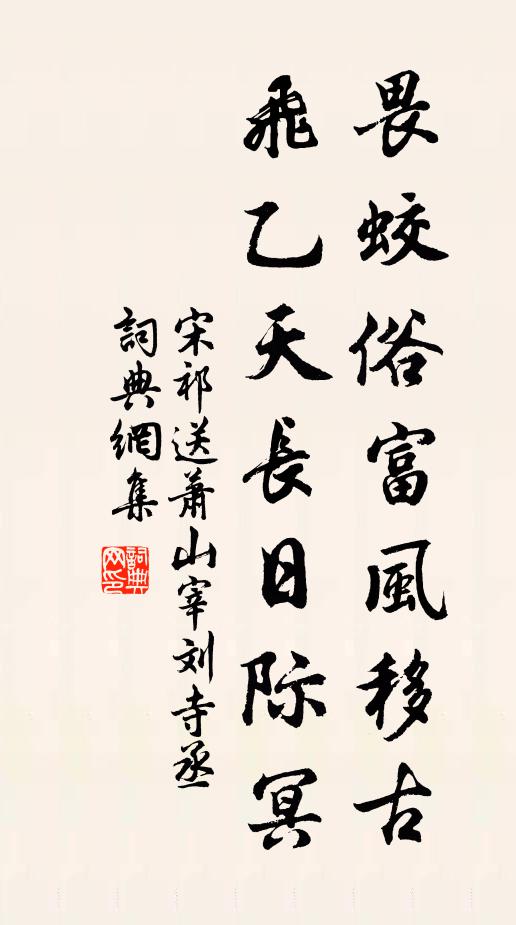 畏蛟俗富風移古
飛乙天長日际冥
宋祁送蕭山宰刘寺丞
詞典網集
詞典
网印